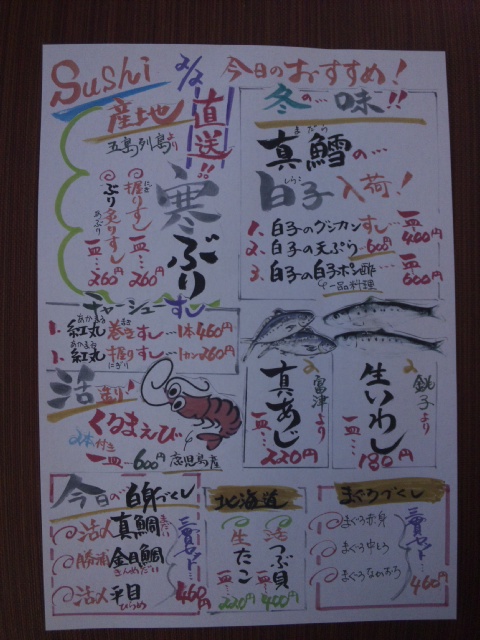 Sushi 2/2 今日のおすすめ!
産土地直送!!
五島列島より
寒ぶり
握りすし 一皿…260円
ぶり炙りすし 一皿…260円
あぶり
冬の…味!!
まだら
真鱈の…
しらこ
白子入荷!
1、白子のグンカンすし…一皿400円
2、白子の天ぷら…600円
3、白子の白子ポン酢…一皿600円
一品料理
チャーシューすし
あかまる
1、紅丸巻きすし…1本460円
あかまる
1、紅丸握りすし…1カン260円
にぎり
活造り!
くるまえび
2本付き
一皿…600円 鹿児島産
富津より
真あじ
一皿…220円
銚子より
生いわし
一皿…180円
今日の白身づくし
活〆真鯛
勝浦金目鯛
きんめだい
活〆平目
ひらめ
三貫セット…460円
北海道
活つぶ貝 一皿…400円
生たこ 一皿…220円
まぐろづくし
まぐろ赤身
まぐろ中とろ
まぐろなかおち
三貫セット…460円